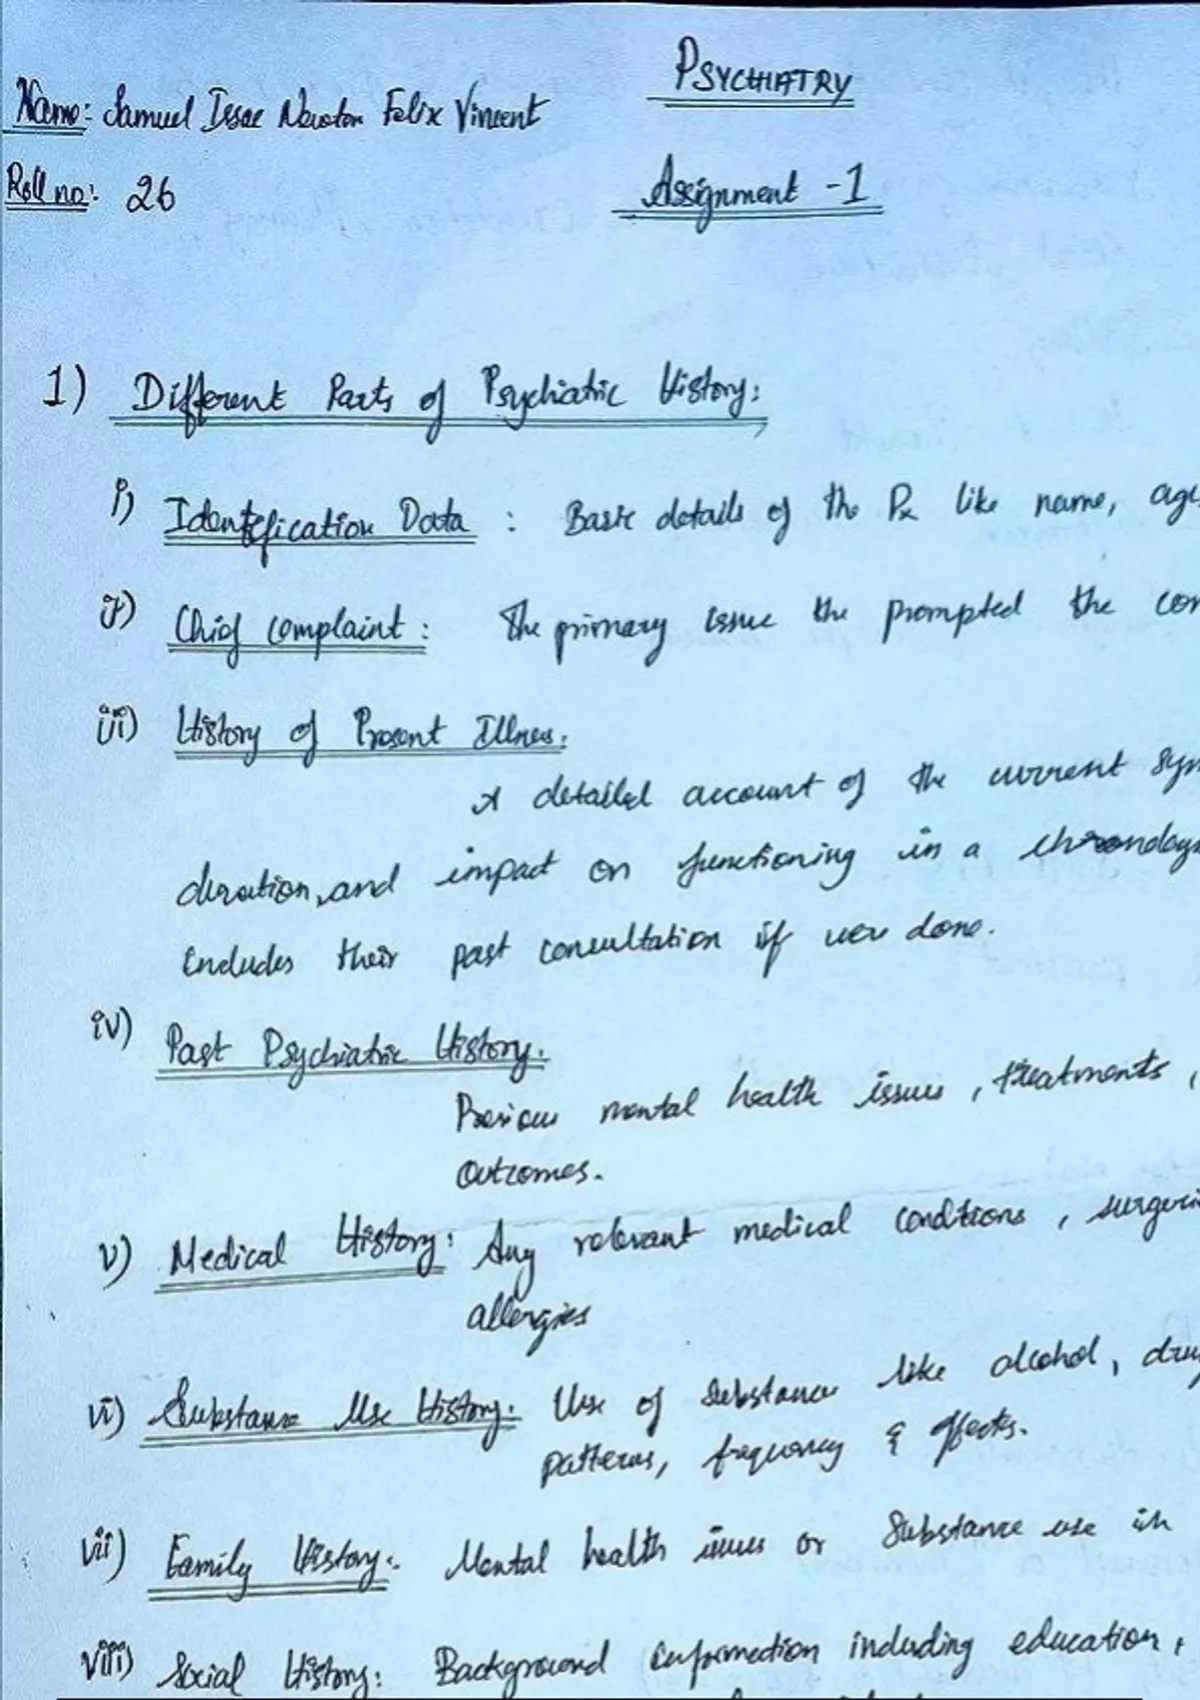 PSYCHIATRY
Name: Samuel Issac Newton Felix Vincent
Roll no: 26
Assignment -1
1) Different Parts of Psychiatric History:
i) Identification Data : Basic details of the Px like name, age
ii) Chief complaint: The primary issue the prompted the
iii) History of Present Illness:
A detailed account of the current
duration, and impact on functioning in a
includes their past consultation if were done.
iv) Past Psychiatric History.
Previous mental health issues, treatments,
outcomes.
v) Medical History: Any relevant medical conditions,
allergies
vi) Substance Use History. Use of substances like alcohol,
patterns, frequency & effects.
vii) Family History: Mental health issues or substance use in
viii) Social History: Background information including education,